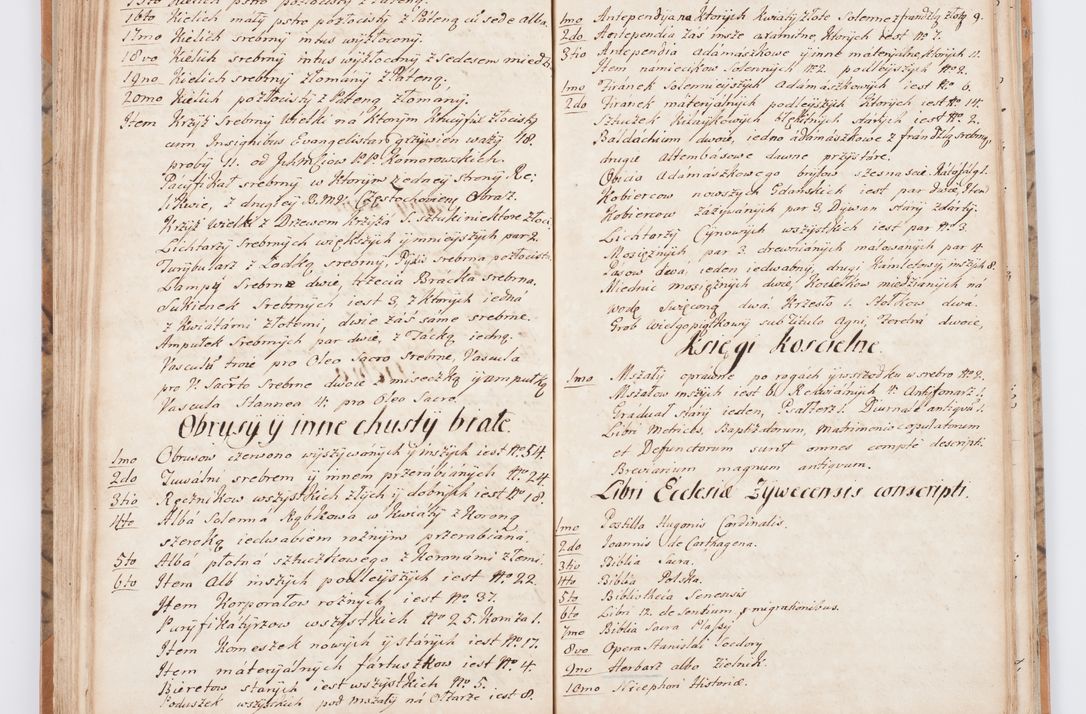 16to Kielich mały pstro pozłocisty z Pateną cū sede alba.
17mo Kielich srebrny intus wyzłocony.
18vo Kielich srebrny intus wyzłocony z Sedesem miedz.
19no Kielich srebrny złomany z Pateną.
20mo Kielich pozłocisty z Pateną złomany.
Item Krzyż Srebrny Wielki na którym Krucyfix złocisty
cum Insignibus Evangelistar. grzywien waży 48.
proby 11. od JchMciow PP. Komorowskich.
Pacyfikał srebrny w ktorym z edney strony Re:
likwie, z drugiey B.M.P. Częstochowiey Obraz.
Krzyż wielki z Drzewem krzyża S. sztuki niektore złoci.
Lichtarzy srebrnych większych y mnieyszych par 2.
Turybularz z Łodką srebrny, Pyxis Srebrna pozłocista
Lampy Srebrne dwie, trzecia Bracka srebrna.
Sukienek Srebrnych iest 3, z ktorych iedna
z kwiatami złotemi, dwie zaś same srebrne.
Ampułek Srebrnych par dwie, z Tacką iedną.
Vascula troie pro Oleo sacro srebrne, Vascula
pro V. Sacrto srebrne dwoie z miseczką y ampułką
Vascula Stannea 4. pro Oleo Sacro.
Obrusy y inne chusty białe.
1mo Obrusow czerwono wyszywanych y inszych iest No 54.
2do Tuwalni srebrem y innem przerabianych No 24
3tio Ręcznikow wszystkich złych y dobrych iest No 18.
4to Alba Solenna Rąbkowa w kwiaty z Koroną
szeroką iedwabiem rożnym przerabiana.
5to Alba płotna sztuczkowego z Koronami złemi.
6to Item Alb inszych podleyszych iest No 22.
Item Korporałow rożnych iest No 37.
Puryfikatyrzow wszystkich No 25. Komża 1.
Item Komeszek nowych y starych iest No 17.
Item materyalnych fartuszkow iest No 4.
Bieretow starych iest wszystkich No 5.
Poduszek wszystkich pod mszały na Ołtarze iest 8.
1mo Antependya na ktorych Kwiaty złote Solenne z frandzlą złotą 9.
2do Antependia zaś insze axamitne, ktorych iest No 7.
3tio Antependia adamaszkowe y inne materyalne, ktorych 11.
Item namiecikow Solennych No 2. podleyszych No 2.
1mo Firanek Solennieyszych Adamaszkowych iest No 6.
2do Firanek materyalnych podleyszych ktorych iest No 14.
Sztuczek Kitaykowych błękitnych starych iest No 2.
Baldachium dwoie, iedno adamaszkowe z frandzlą srebrną,
drugie altembasowe dawne przystare.
Obicia Adamaszkowego brytow szesnascie.
Kobiercow nowszych Gdańskich iest par dwie, Item
Kobiercow zazywanych par 3. Dywan stary zdarty.
Lichtarzy Cynowych wszystkich iest par No 3.
Mosiężnych par 3. drewnianych malowanych par 4.
Pasow dwa, ieden iedwabny, drugi Kamletowy, inszych 8.
Miednic mosiężnych dwie, Kociełkow miedzianych na
wodę Swięconą dwa. Krzesło 1. Stołkow dwa.
Grob Wielgopiątkowy sub Titulo Agni, Feretra dwoie,
Księgi Koscielne.
1mo Mszały oprawne po rogach y w srzodku w srebro No 2.
Mszałow inszych iest 6. Rekwialnych 4. Antyfonarz 1.
Graduał Stary ieden, Psałterz 1. Diurnale antiqvū 1.
Libri Metrices, Baptizatorum, Matrimonio copulatorum
et Defunctorum sunt omnes complete descripti.
Breviarium magnum antiqvum.
Libri Ecclesiæ Zywecensis conscripti.
1mo Postilla Hugonis Cardinalis.
2do Joannis de Carthagena.
3tio Biblia Sacra.
4to Biblia Polska.
5to Bibliotheca Senensis
6to Libri 12. de Sentium migrationibus.
7mo Biblia Sacra
8vo Opera Stanislai Soclovij
9no Herbarz albo Zielnik.
10mo Nicephori Historiæ.